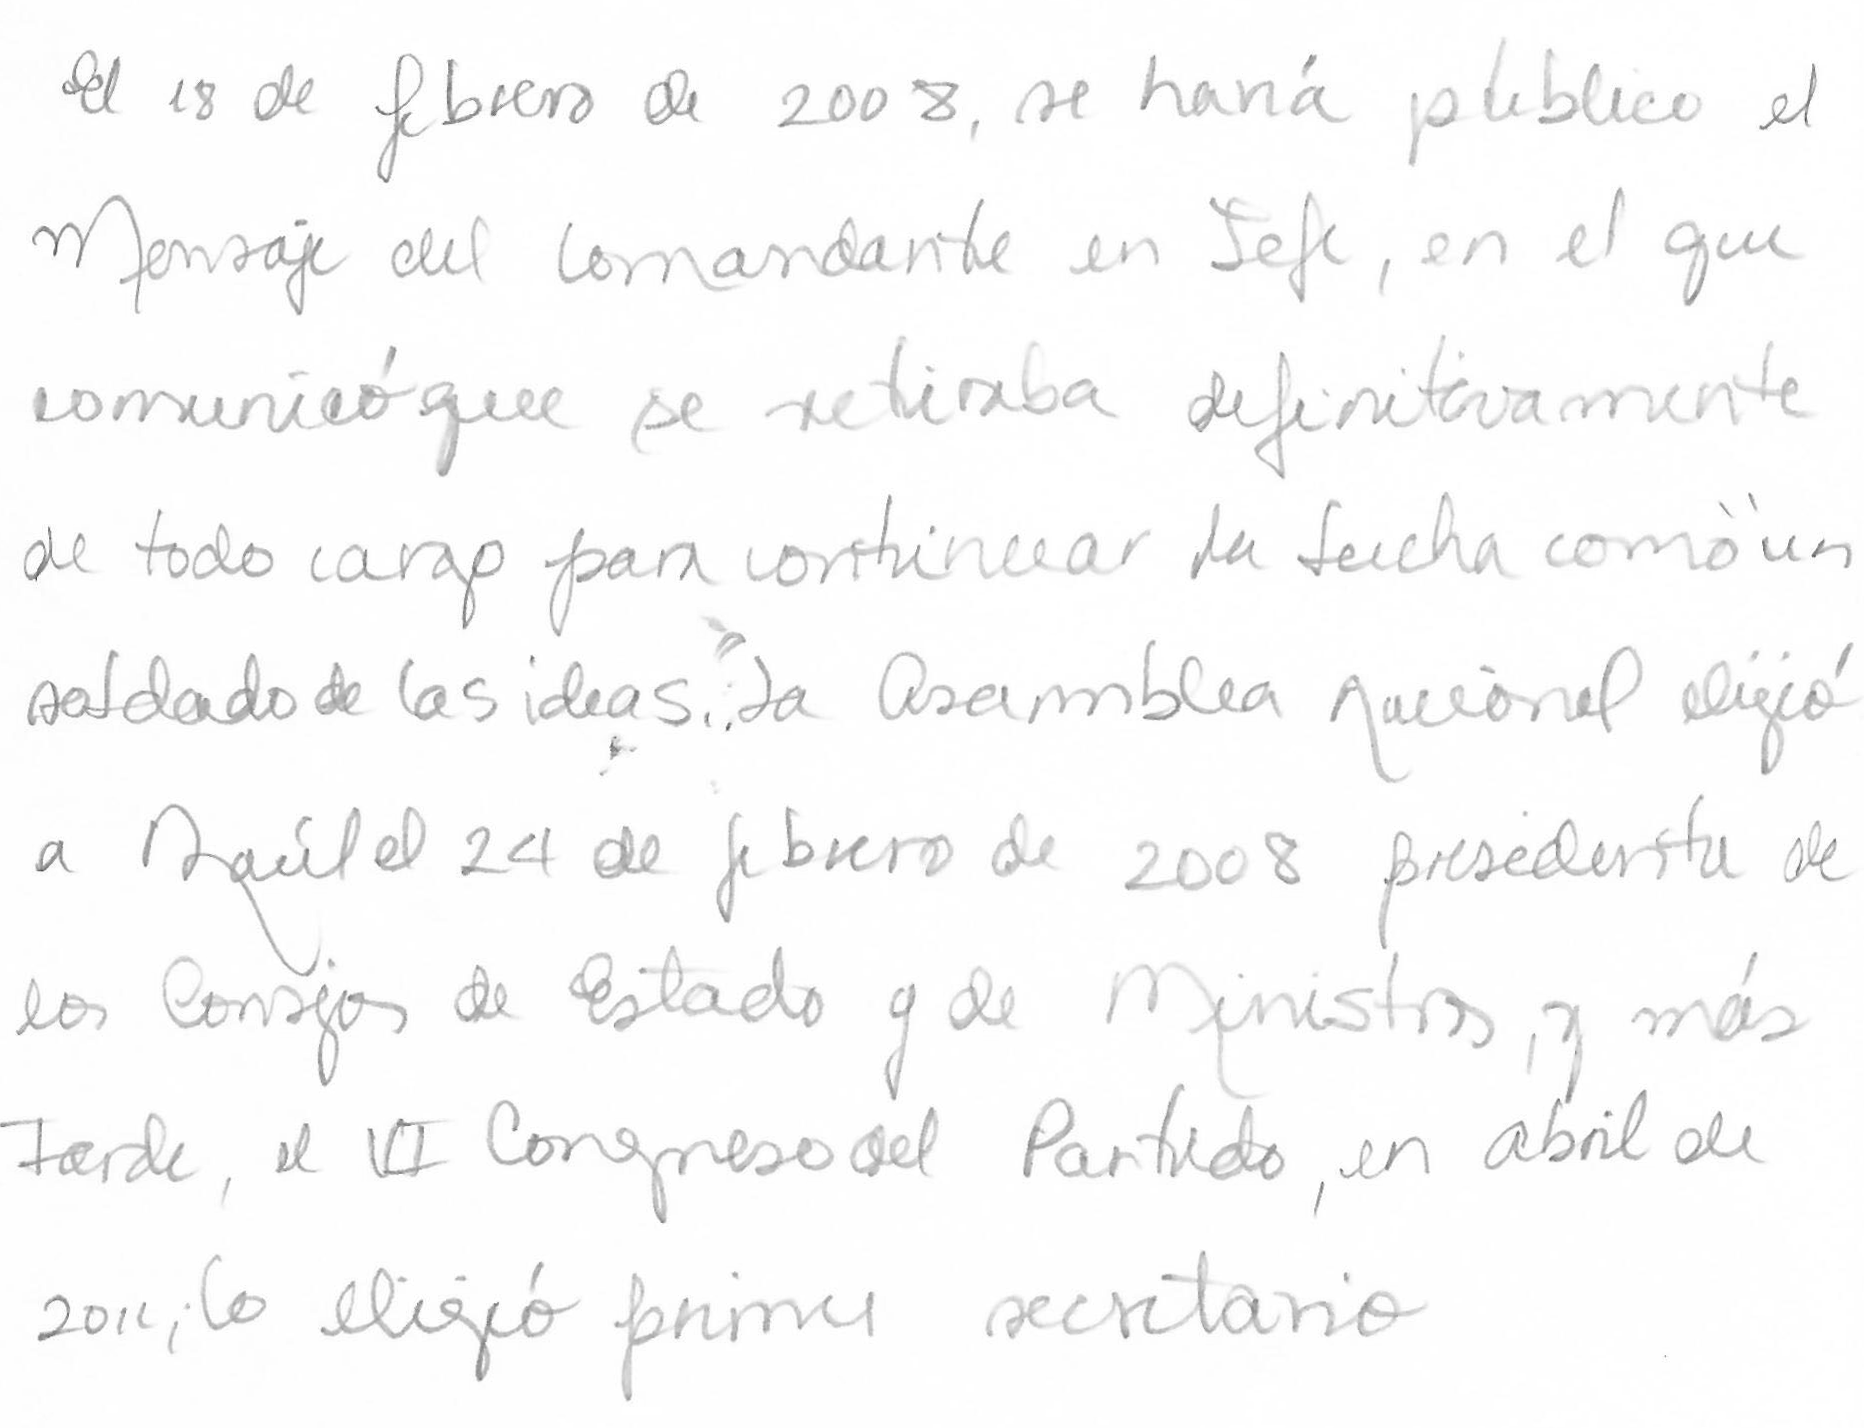 El 18 de febrero de 2008, se haría público el
Mensaje del Comandante en Jefe, en el que
comunicó que se retiraba definitivamente
de todo cargo para continuar la lucha como "un
soldado de las ideas." La Asamblea Nacional eligió
a Raúl el 24 de febrero de 2008 presidente de
los Consejos de Estado y de Ministros, y más
Tarde, el VI Congreso del Partido, en abril de
2011, lo eligió primer secretario